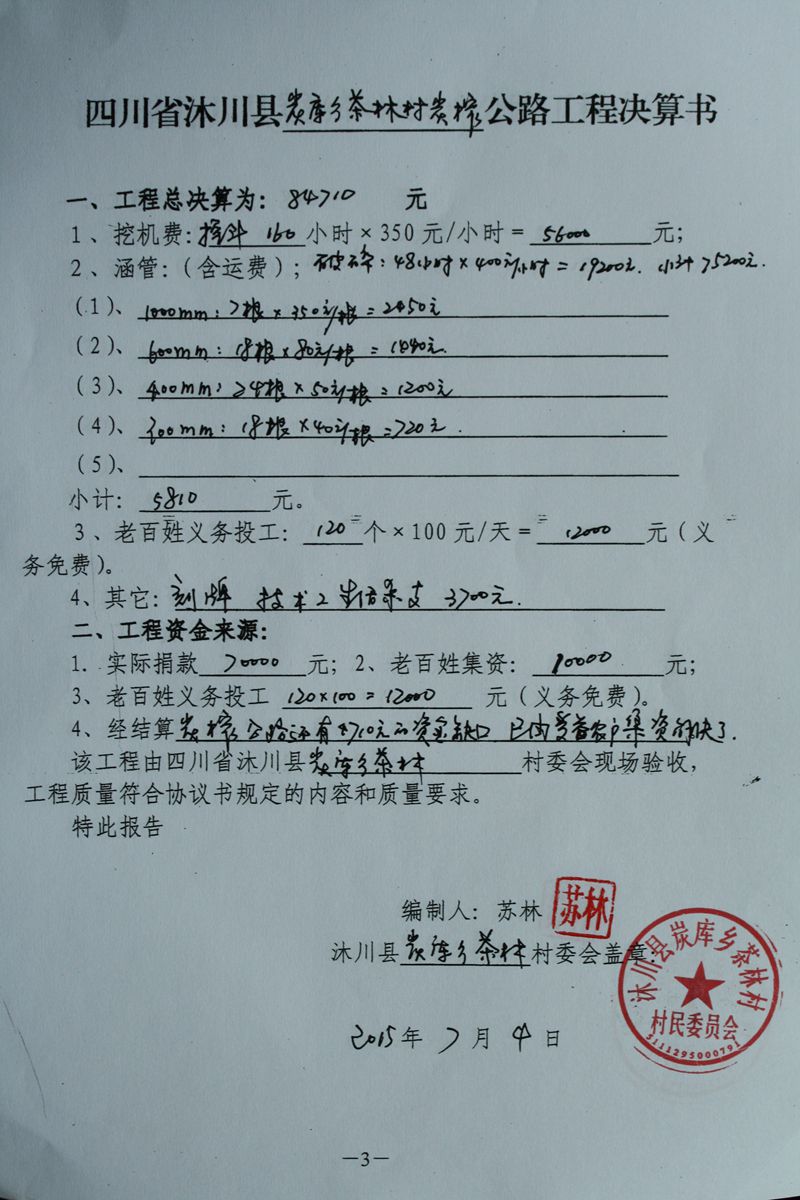 四川省沐川县炭库乡茶林村炭榨公路工程决算书
一、工程总决算为：84710 元
1、挖机费：挖斗 160 小时×350元/小时＝56000 元；
2、涵管：（含运费）；破碎：48小时×400元/小时＝19200元．小计75200元．
（1）、1000mm：7根×350元/根＝2450元
（2）、600mm：18根×80元/根＝1440元．
（3）、400mm：24根×50元/根＝1200元
（4）、300mm：18根×40元/根＝720元．
（5）、
小计：5810 元。
3、老百姓义务投工：120 个×100元/天＝12000 元（义
务免费）。
4、其它：刻牌 技术工 生活开支 3700元．
二、工程资金来源：
1．实际捐款 70000 元；2、老百姓集资：10000 元；
3、老百姓义务投工 120×100＝12000 元（义务免费）。
4、经结算炭榨公路还有4710元的资金缺口 已由受益农户集资解决了．
该工程由四川省沐川县炭库乡茶林 村委会现场验收，
工程质量符合协议书规定的内容和质量要求。
特此报告
编制人：苏林 苏林
沐川县炭库乡茶林村委会盖章：
沐川县炭库乡茶林村
村民委员会
5111295000791
2015年7月4日
—3—